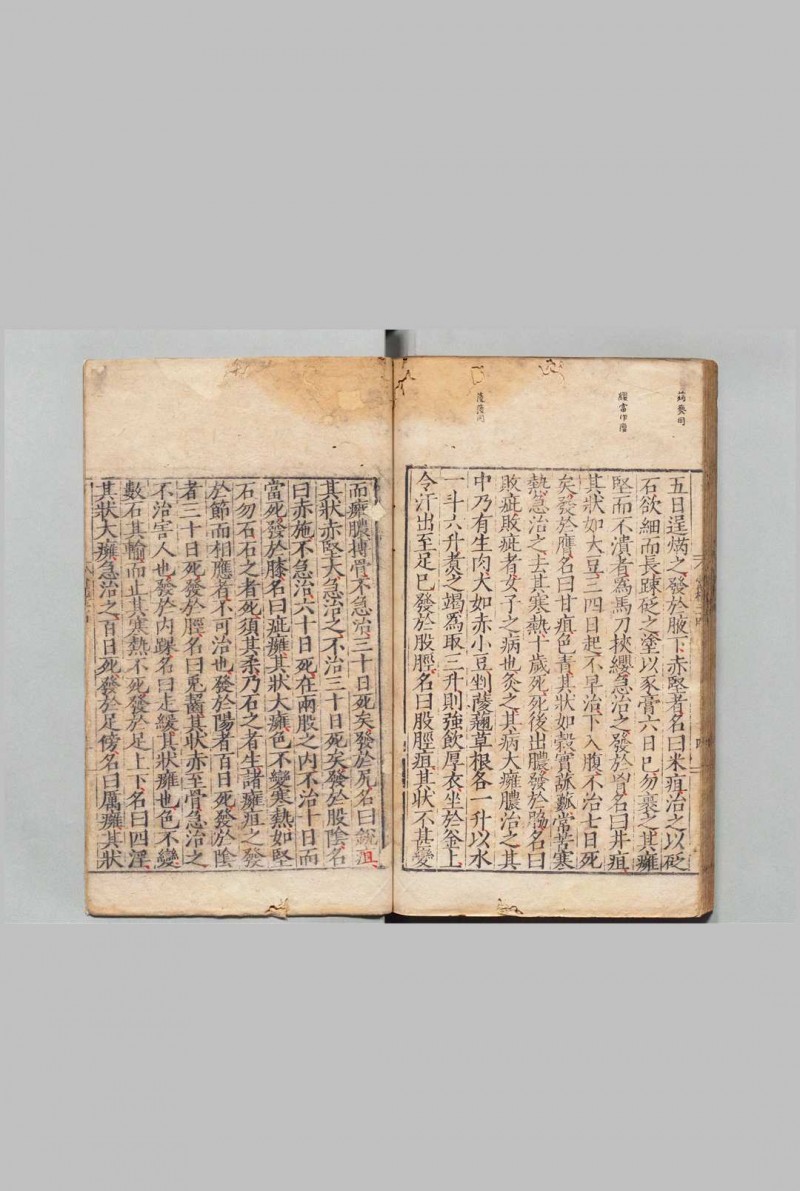 五日逞焫之發於腋下赤堅者名曰米疽治之以砭
石欲細而長踈砭之塗以豕膏六日已勿裹之其癰
堅而不潰者爲馬刀挾纓急治之發於胷名曰井疽
其狀如大豆三四日起不早治下入腹不治七日死
矣發於膺名曰甘疽色青其狀如穀實䔉䓤常苦寒
熱急治之去其寒熱十歲死死後出膿發於脇名曰
敗疵敗疵者女子之病也灸之其病大癰膿治之其
中乃有生肉大如赤小豆剉䔖䓫草根各一升以水
一斗六升煮之竭爲取三升則強飲厚衣坐於釜上
令汗出至足已發於股脛名曰股脛疽其狀不甚變
而癰膿搏骨不急治三十日死矣發於尻名曰銳疽
其狀赤堅大急治之不治三十日死矣發於股陰名
曰赤施不急治六十日死在兩股之內不治十日而
當死發於膝名曰疵癰其狀大癰色不變寒熱如堅
石勿石石之者死須其柔乃石之者生諸癰疽之發
於節而相應者不可治也發於陽者百日死發於陰
者三十日死發於脛名曰兎齧其狀赤至骨急治之
不治害人也發於內踝名曰走緩其狀癰也色不變
數石其輸而止其寒熱不死發於足上下名曰四淫
其狀大癰急治之百日死發於足傍名曰厲癰其狀